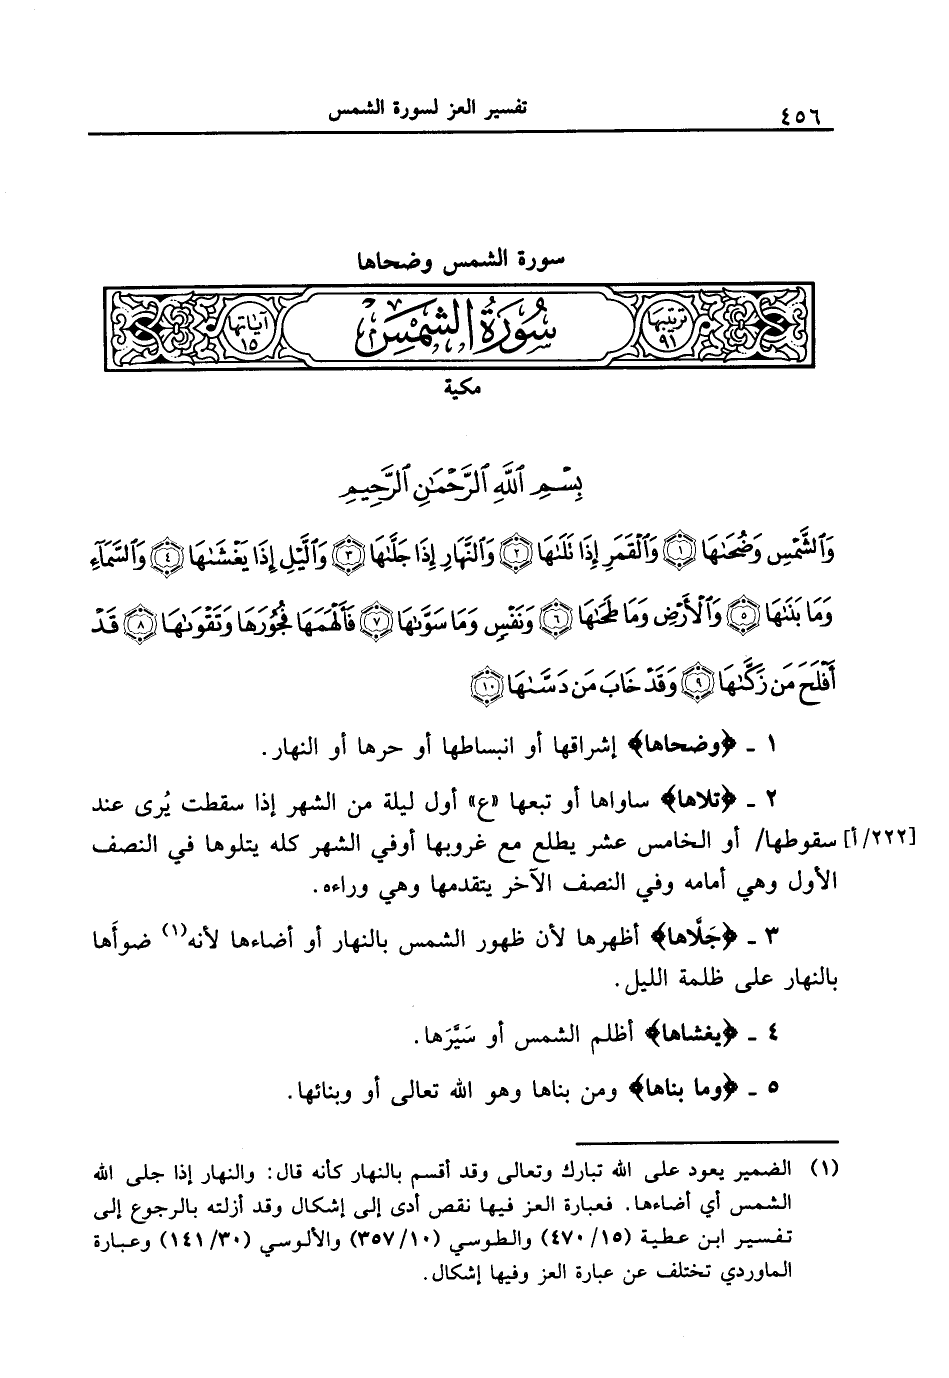 ٤٥٦ تفسير العز لسورة الشمس
سورة الشمس وضحاها
ترتيبها ٩١ سُورَةُ الشَّمْسِ آياتها ١٥
مكية
بِسْمِ ٱللَّهِ ٱلرَّحْمَٰنِ ٱلرَّحِيمِ
وَٱلشَّمْسِ وَضُحَىٰهَا ١ وَٱلْقَمَرِ إِذَا تَلَىٰهَا ٢ وَٱلنَّهَارِ إِذَا جَلَّىٰهَا ٣ وَٱلَّيْلِ إِذَا يَغْشَىٰهَا ٤ وَٱلسَّمَآءِ
وَمَا بَنَىٰهَا ٥ وَٱلْأَرْضِ وَمَا طَحَىٰهَا ٦ وَنَفْسٍ وَمَا سَوَّىٰهَا ٧ فَأَلْهَمَهَا فُجُورَهَا وَتَقْوَىٰهَا ٨ قَدْ
أَفْلَحَ مَن زَكَّىٰهَا ٩ وَقَدْ خَابَ مَن دَسَّىٰهَا ١٠
١ ـ ﴿وضحاها﴾ إشراقها أو انبساطها أو حرها أو النهار.
٢ ـ ﴿تلاها﴾ ساواها أو تبعها «ع» أول ليلة من الشهر إذا سقطت يُرى عند
[٢٢٢/أ] سقوطها/ أو الخامس عشر يطلع مع غروبها أوفي الشهر كله يتلوها في النصف
الأول وهي أمامه وفي النصف الآخر يتقدمها وهي وراءه.
٣ ـ ﴿جَلَّاها﴾ أظهرها لأن ظهور الشمس بالنهار أو أضاءها لأنه(١) ضوأَها
بالنهار على ظلمة الليل.
٤ ـ ﴿يغشاها﴾ أظلم الشمس أو سَيَّرَها.
٥ ـ ﴿وما بناها﴾ ومن بناها وهو الله تعالى أو وبنائها.
(١) الضمير يعود على الله تبارك وتعالى وقد أقسم بالنهار كأنه قال: والنهار إذا جلى الله
الشمس أي أضاءها. فعبارة العز فيها نقص أدى إلى إشكال وقد أزلته بالرجوع إلى
تفسير ابن عطية (٤٧٠/١٥) والطوسي (٣٥٧/١٠) والألوسي (١٤١/٣٠) وعبارة
الماوردي تختلف عن عبارة العز وفيها إشكال.